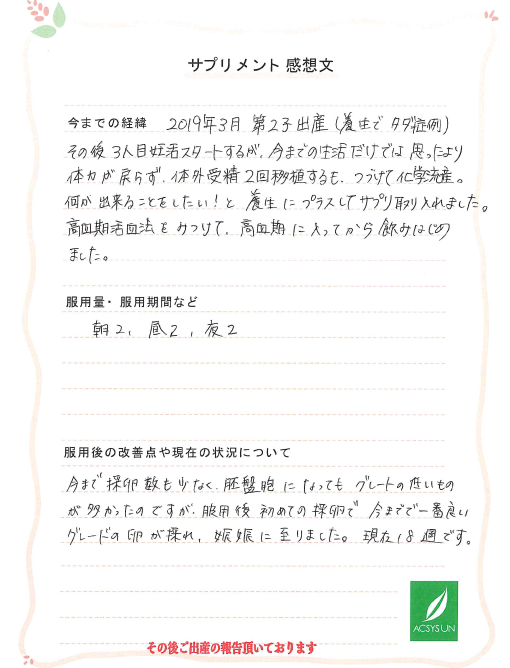 サプリメント 感想文
今までの経緯 2019年3月 第2子出産(養生で タダ症例)
その後 3人目妊活スタートするが、今までの生活だけでは 思ったより
体力が戻らず、体外受精 2回移植するも、つづけて化学流産。
何か出来ることをしたい!と 養生にプラスしてサプリ取り入れました。
高血期活血法をみつけて、高血期に入ってから飲みはじめ
ました。
服用量・服用期間など
朝2, 昼2, 夜2
服用後の改善点や現在の状況について
今まで採卵数も少なく、胚盤胞になっても グレートの低いもの
が多かったのですが、服用後 初めての採卵で 今までで一番良い
グレードの卵が採れ、妊娠に至りました。現在18週です。
ACSYSUN
その後ご出産の報告頂いております